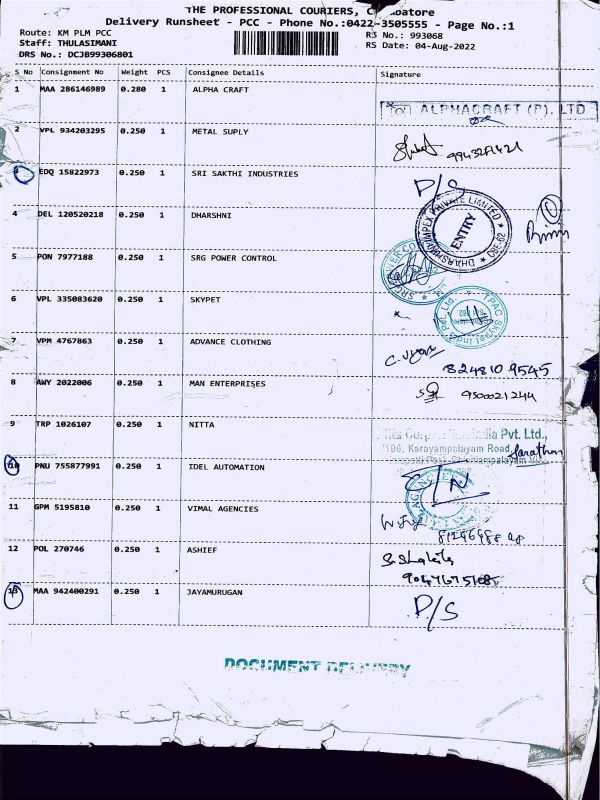 THE PROFESSIONAL COURIERS,
Delivery Runsheet - PCC - Phone No.:0422-3505555 - Page No.:1
Route: KM PLM PCC
RS No.: 993068
Staff: THULASIMANI
RS Date: 04-Aug-2022
DRS No.: DCJB99306801
S No Consignment No Weight PCS Consignee Details Signature
1 MAA 286146989 0.280 1 ALPHA CRAFT
ALPHACRAFT (P). LTD
2 VPL 934203295 0.250 1 METAL SUPLY
3 EDQ 15822973 0.250 1 SRI SAKTHI INDUSTRIES
D/S
4 DEL 120520218 0.250 1 DHARSHNI
ENTRY
5 PON 7977188 0.250 1 SRG POWER CONTROL
6 VPL 335083620 0.250 1 SKYPET
7 VPM 4767863 0.250 1 ADVANCE CLOTHING
824810 9545
8 AWY 2022006 0.250 1 MAN ENTERPRISES
9500021244
9 TRP 1026107 0.250 1 NITTA
India Pvt. Ltd.,
Karayampalayam Road,
10 PNU 755877991 0.250 1 IDEL AUTOMATION
11 GPM 5195810 0.250 1 VIMAL AGENCIES
12 POL 270746 0.250 1 ASHIEF
13 MAA 942400291 0.250 1 JAYAMURUGAN
D/S
DOCUMENT DELIVERY